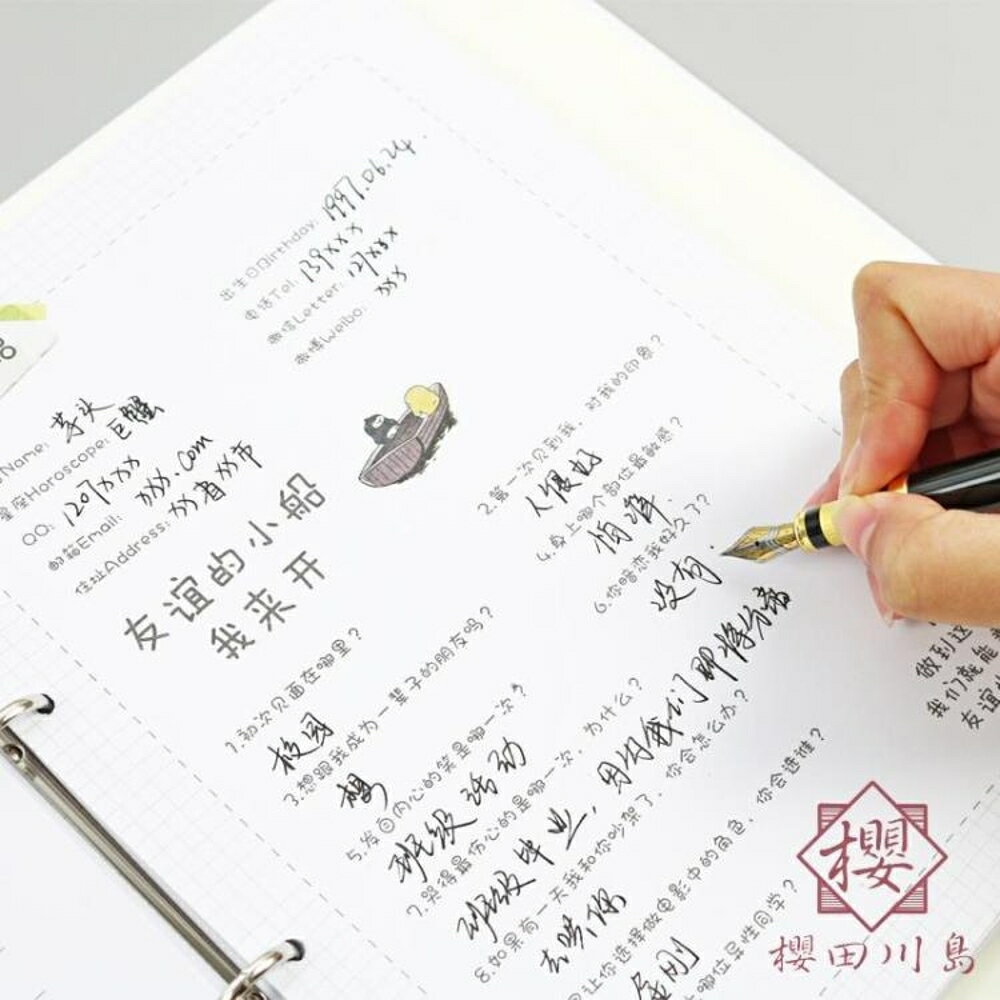 出生日Birthday: 1997.06.24.
电话Tel: 139xxxx
微信Letter: 127xxxx
微博Weibo: xxx
Name: 芋头
星座Horoscope: 巨蟹
QQ: 1207xxxx
邮箱Email: xxx.com
住址Address: xx省xx市
友谊的小船
我来开
1.初次见面在哪里?
校园
2.第一次见到我,对我的印象?
人很好
3.想跟我成为一辈子的朋友吗?
想
4.身上哪个部位最敏感?
怕痒
5.发自内心的笑是哪一次?
班级活动
6.你暗恋我好久了??
没有.
7.哭得最伤心的是哪一次,为什么?
班级毕业,因为我们即将分离
8.如果有一天我和你吵架了,你会怎么办?
去哄你
让你选择做电影中的角色,你会选谁?
金刚
哪位异性同学?
做到这
我们就能
友谊
櫻
櫻田川島